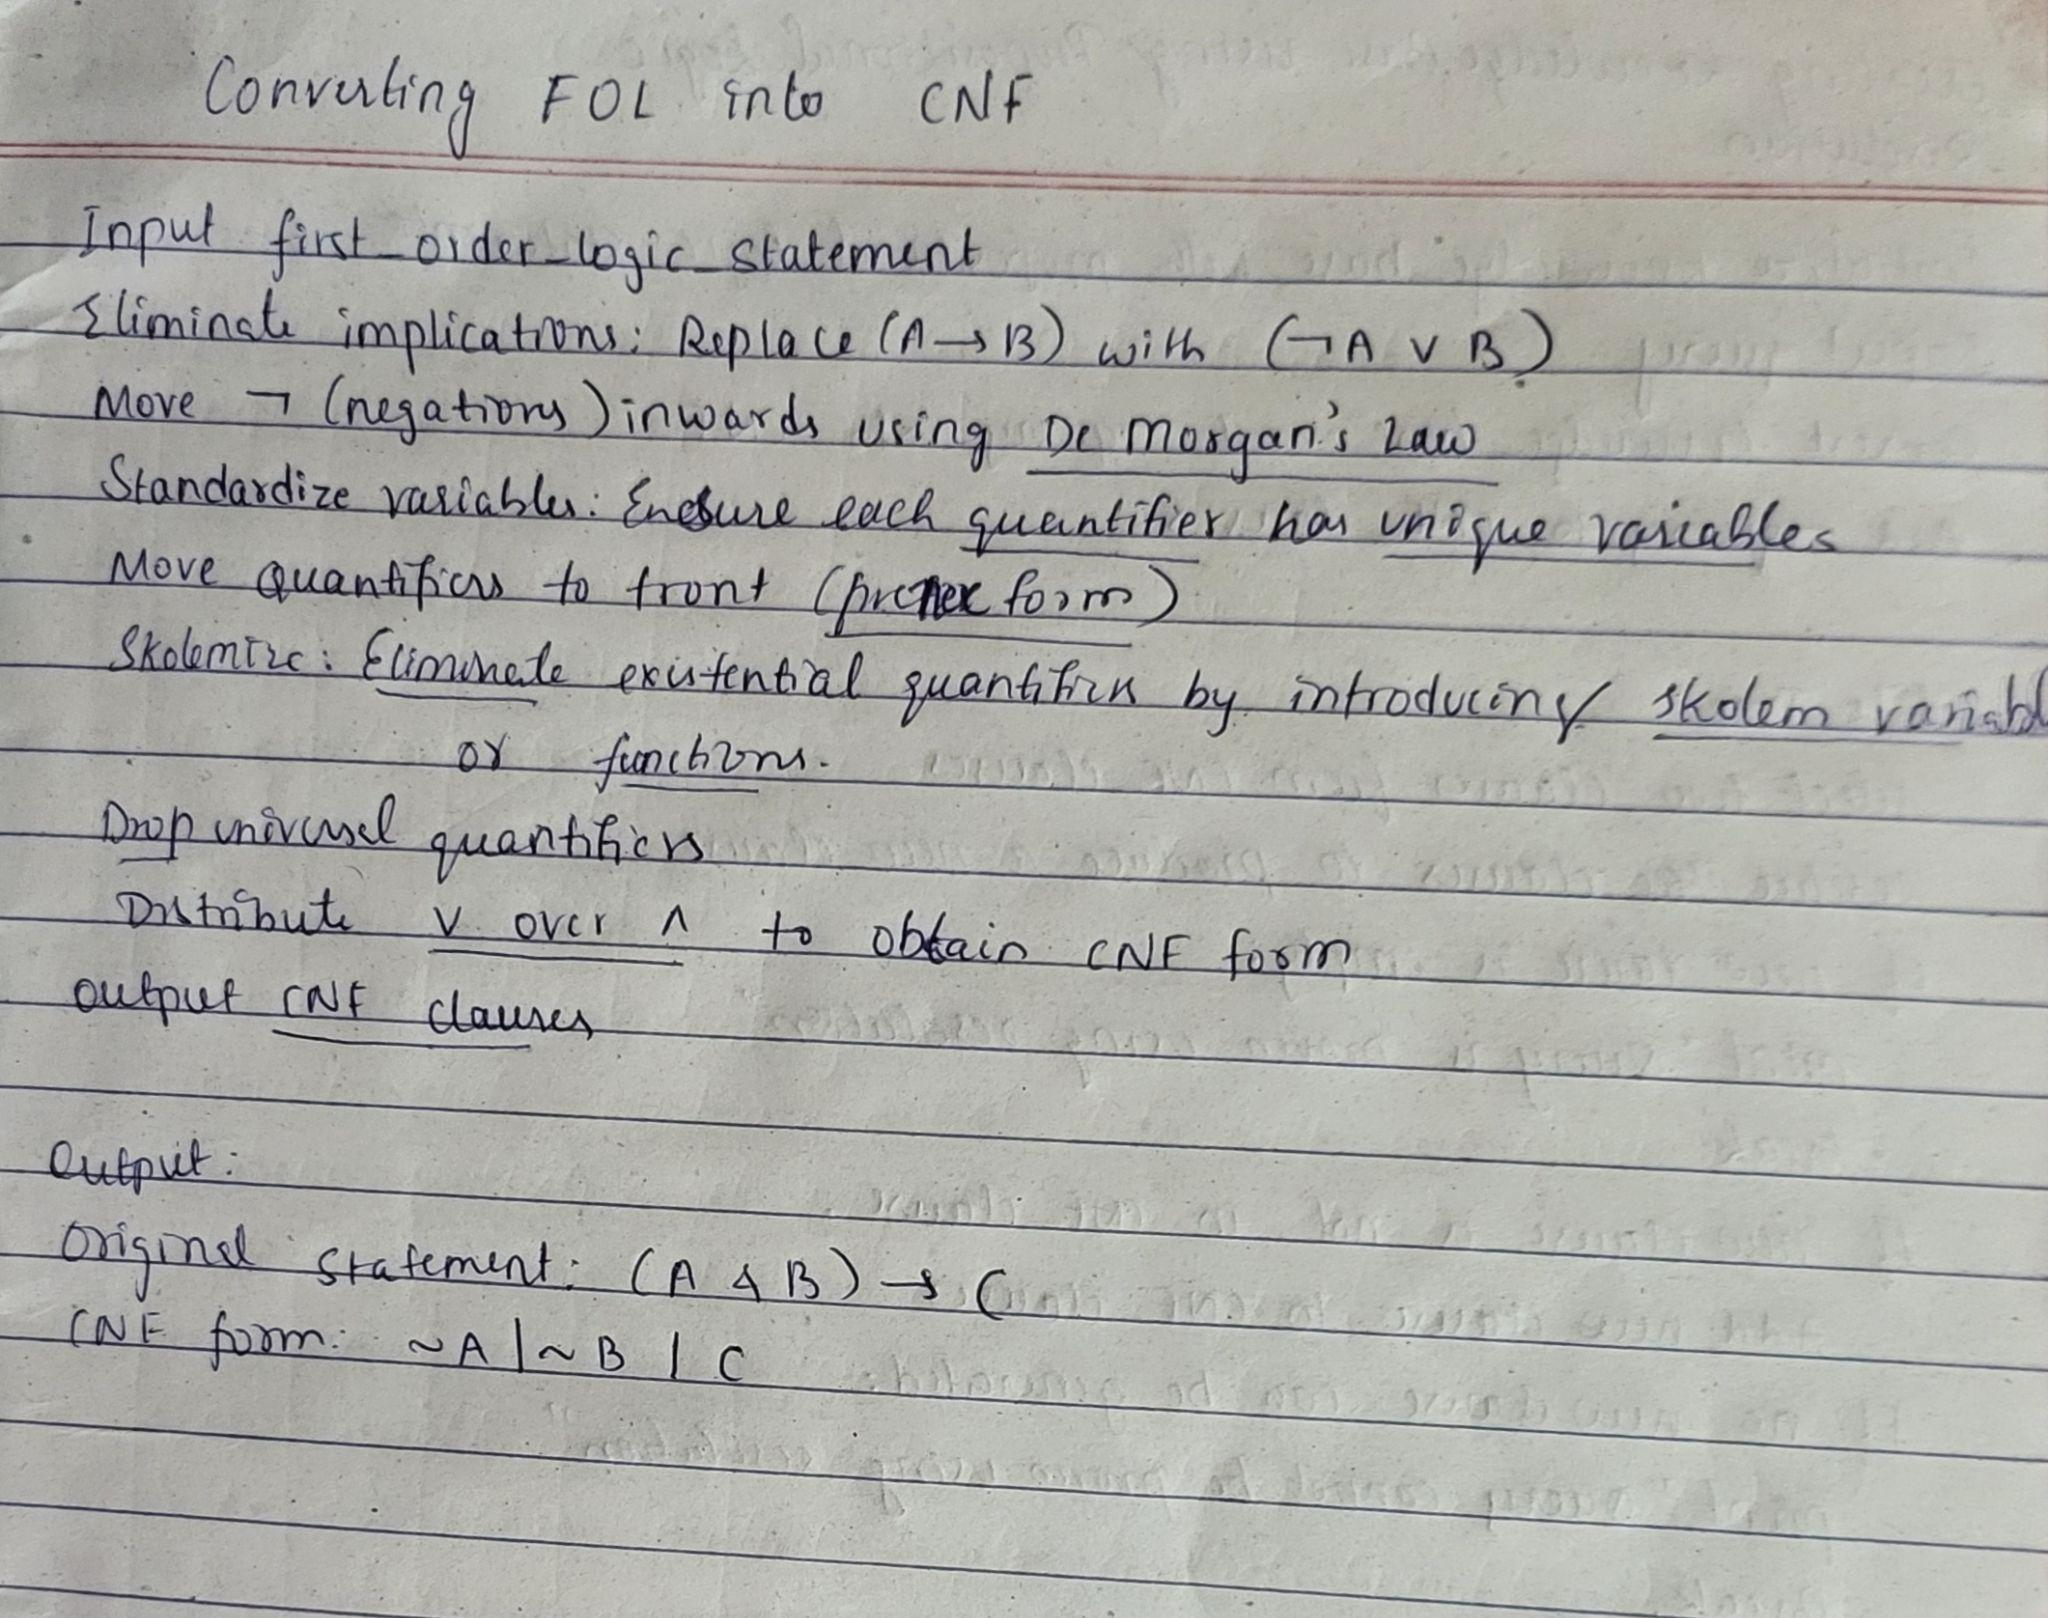 Converting FOL into CNF
Input first_order_logic_statement
Eliminate implications: Replace (A → B) with (¬A ∨ B)
Move ¬ (negations) inwards using De Morgan's Law
Standardize variables: Ensure each quantifier has unique variables
Move Quantifiers to front (prenex form)
Skolemize: Eliminate existential quantifiers by introducing skolem variabl
or functions.
Drop universal quantifiers
Distribute ∨ over ∧ to obtain CNF form
Output CNF clauses
Output:
Original statement: (A & B) → C
CNF form: ~A | ~B | C